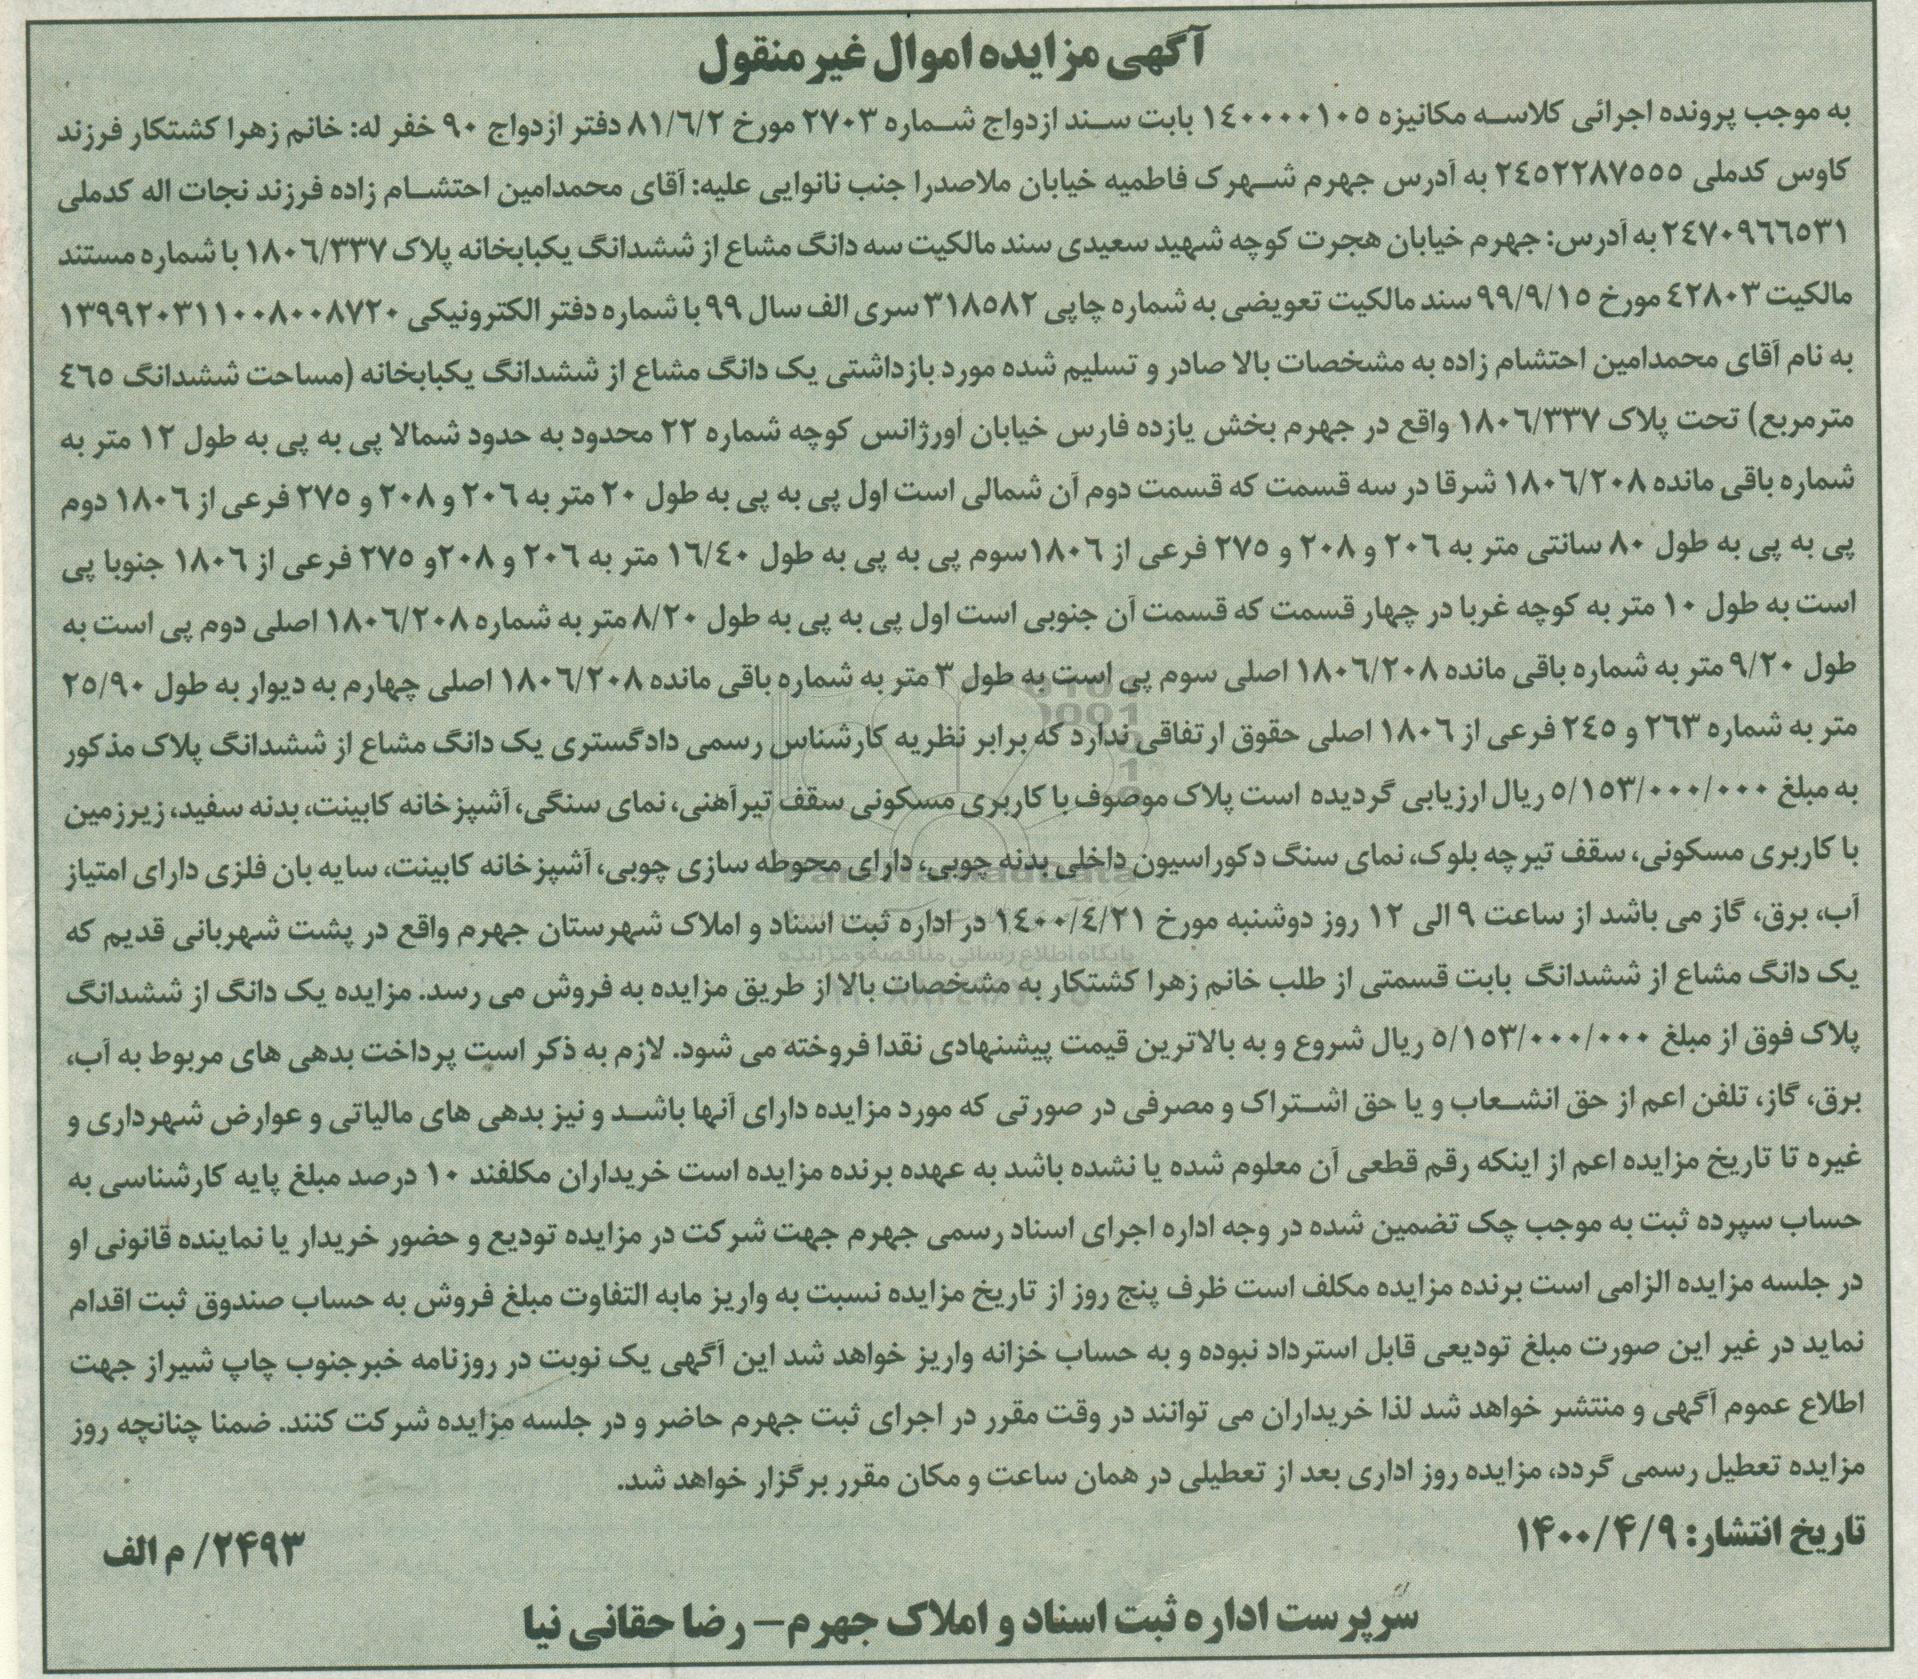 آگهی مزایده اموال غیر منقول
به موجب پرونده اجرائی کلاسه مکانیزه ۱۴۰۰۰۰۱۰۵ بابت سند ازدواج شماره ۲۷۰۳ مورخ ۸۱/۶/۲ دفتر ازدواج ۹۰ خفر له: خانم زهرا کشتکار فرزند
کاوس کدملی ۲۴۵۲۲۸۷۵۵۵ به آدرس جهرم شهرک فاطمیه خیابان ملاصدرا جنب نانوایی علیه: آقای محمدامین احتشام زاده فرزند نجات اله کدملی
۲۴۷۰۹۶۶۵۳۱ به آدرس: جهرم خیابان هجرت کوچه شهید سعیدی سند مالکیت سه دانگ مشاع از ششدانگ یکبابخانه پلاک ۱۸۰۶/۳۳۷ با شماره مستند
مالکیت ۴۲۸۰۳ مورخ ۹۹/۹/۱۵ سند مالکیت تعویضی به شماره چاپی ۳۱۸۵۸۲ سری الف سال ۹۹ با شماره دفتر الکترونیکی ۱۳۹۹۲۰۳۱۱۰۰۸۰۰۸۷۲۰
به نام آقای محمدامین احتشام زاده به مشخصات بالا صادر و تسلیم شده مورد بازداشتی یک دانگ مشاع از ششدانگ یکبابخانه (مساحت ششدانگ ۴۶۵
مترمربع) تحت پلاک ۱۸۰۶/۳۳۷ واقع در جهرم بخش یازده فارس خیابان اورژانس کوچه شماره ۲۲ محدود به حدود شمالا پی به پی به طول ۱۲ متر به
شماره باقی مانده ۱۸۰۶/۲۰۸ شرقا در سه قسمت که قسمت دوم آن شمالی است اول پی به پی به طول ۲۰ متر به ۲۰۶ و ۲۰۸ و ۲۷۵ فرعی از ۱۸۰۶ دوم
پی به پی به طول ۸۰ سانتی متر به ۲۰۶ و ۲۰۸ و ۲۷۵ فرعی از ۱۸۰۶سوم پی به پی به طول ۱۶/۴۰ متر به ۲۰۶ و ۲۰۸و ۲۷۵ فرعی از ۱۸۰۶ جنوبا پی
است به طول ۱۰ متر به کوچه غربا در چهار قسمت که قسمت آن جنوبی است اول پی به پی به طول ۸/۲۰ متر به شماره ۱۸۰۶/۲۰۸ اصلی دوم پی است به
طول ۹/۲۰ متر به شماره باقی مانده ۱۸۰۶/۲۰۸ اصلی سوم پی است به طول ۳ متر به شماره باقی مانده ۱۸۰۶/۲۰۸ اصلی چهارم به دیوار به طول ۲۵/۹۰
متر به شماره ۲۶۳ و ۲۴۵ فرعی از ۱۸۰۶ اصلی حقوق ارتفاقی ندارد که برابر نظریه کارشناس رسمی دادگستری یک دانگ مشاع از ششدانگ پلاک مذکور
به مبلغ ۵/۱۵۳/۰۰۰/۰۰۰ ریال ارزیابی گردیده است پلاک موصوف با کاربری مسکونی سقف تیرآهنی، نمای سنگی، آشپزخانه کابینت، بدنه سفید، زیرزمین
با کاربری مسکونی، سقف تیرچه بلوک، نمای سنگ دکوراسیون داخلی بدنه چوبی، دارای محوطه سازی چوبی، آشپزخانه کابینت، سایه بان فلزی دارای امتیاز
آب، برق، گاز می باشد از ساعت ۹ الی ۱۲ روز دوشنبه مورخ ۱۴۰۰/۴/۲۱ در اداره ثبت اسناد و املاک شهرستان جهرم واقع در پشت شهربانی قدیم که
یک دانگ مشاع از ششدانگ بابت قسمتی از طلب خانم زهرا کشتکار به مشخصات بالا از طریق مزایده به فروش می رسد. مزایده یک دانگ از ششدانگ
پلاک فوق از مبلغ ۵/۱۵۳/۰۰۰/۰۰۰ ریال شروع و به بالاترین قیمت پیشنهادی نقدا فروخته می شود. لازم به ذکر است پرداخت بدهی های مربوط به آب،
برق، گاز، تلفن اعم از حق انشعاب و یا حق اشتراک و مصرفی در صورتی که مورد مزایده دارای آنها باشد و نیز بدهی های مالیاتی و عوارض شهرداری و
غیره تا تاریخ مزایده اعم از اینکه رقم قطعی آن معلوم شده یا نشده باشد به عهده برنده مزایده است خریداران مکلفند ۱۰ درصد مبلغ پایه کارشناسی به
حساب سپرده ثبت به موجب چک تضمین شده در وجه اداره اجرای اسناد رسمی جهرم جهت شرکت در مزایده تودیع و حضور خریدار یا نماینده قانونی او
در جلسه مزایده الزامی است برنده مزایده مکلف است ظرف پنج روز از تاریخ مزایده نسبت به واریز مابه التفاوت مبلغ فروش به حساب صندوق ثبت اقدام
نماید در غیر این صورت مبلغ تودیعی قابل استرداد نبوده و به حساب خزانه واریز خواهد شد این آگهی یک نوبت در روزنامه خبرجنوب چاپ شیراز جهت
اطلاع عموم آگهی و منتشر خواهد شد لذا خریداران می توانند در وقت مقرر در اجرای ثبت جهرم حاضر و در جلسه مزایده شرکت کنند. ضمنا چنانچه روز
مزایده تعطیل رسمی گردد، مزایده روز اداری بعد از تعطیلی در همان ساعت و مکان مقرر برگزار خواهد شد.
تاریخ انتشار: ۱۴۰۰/۴/۹
۲۴۹۳/ م الف
سرپرست اداره ثبت اسناد و املاک جهرم– رضا حقانی نیا
پایگاه اطلاع رسانی مناقصه و مزایده